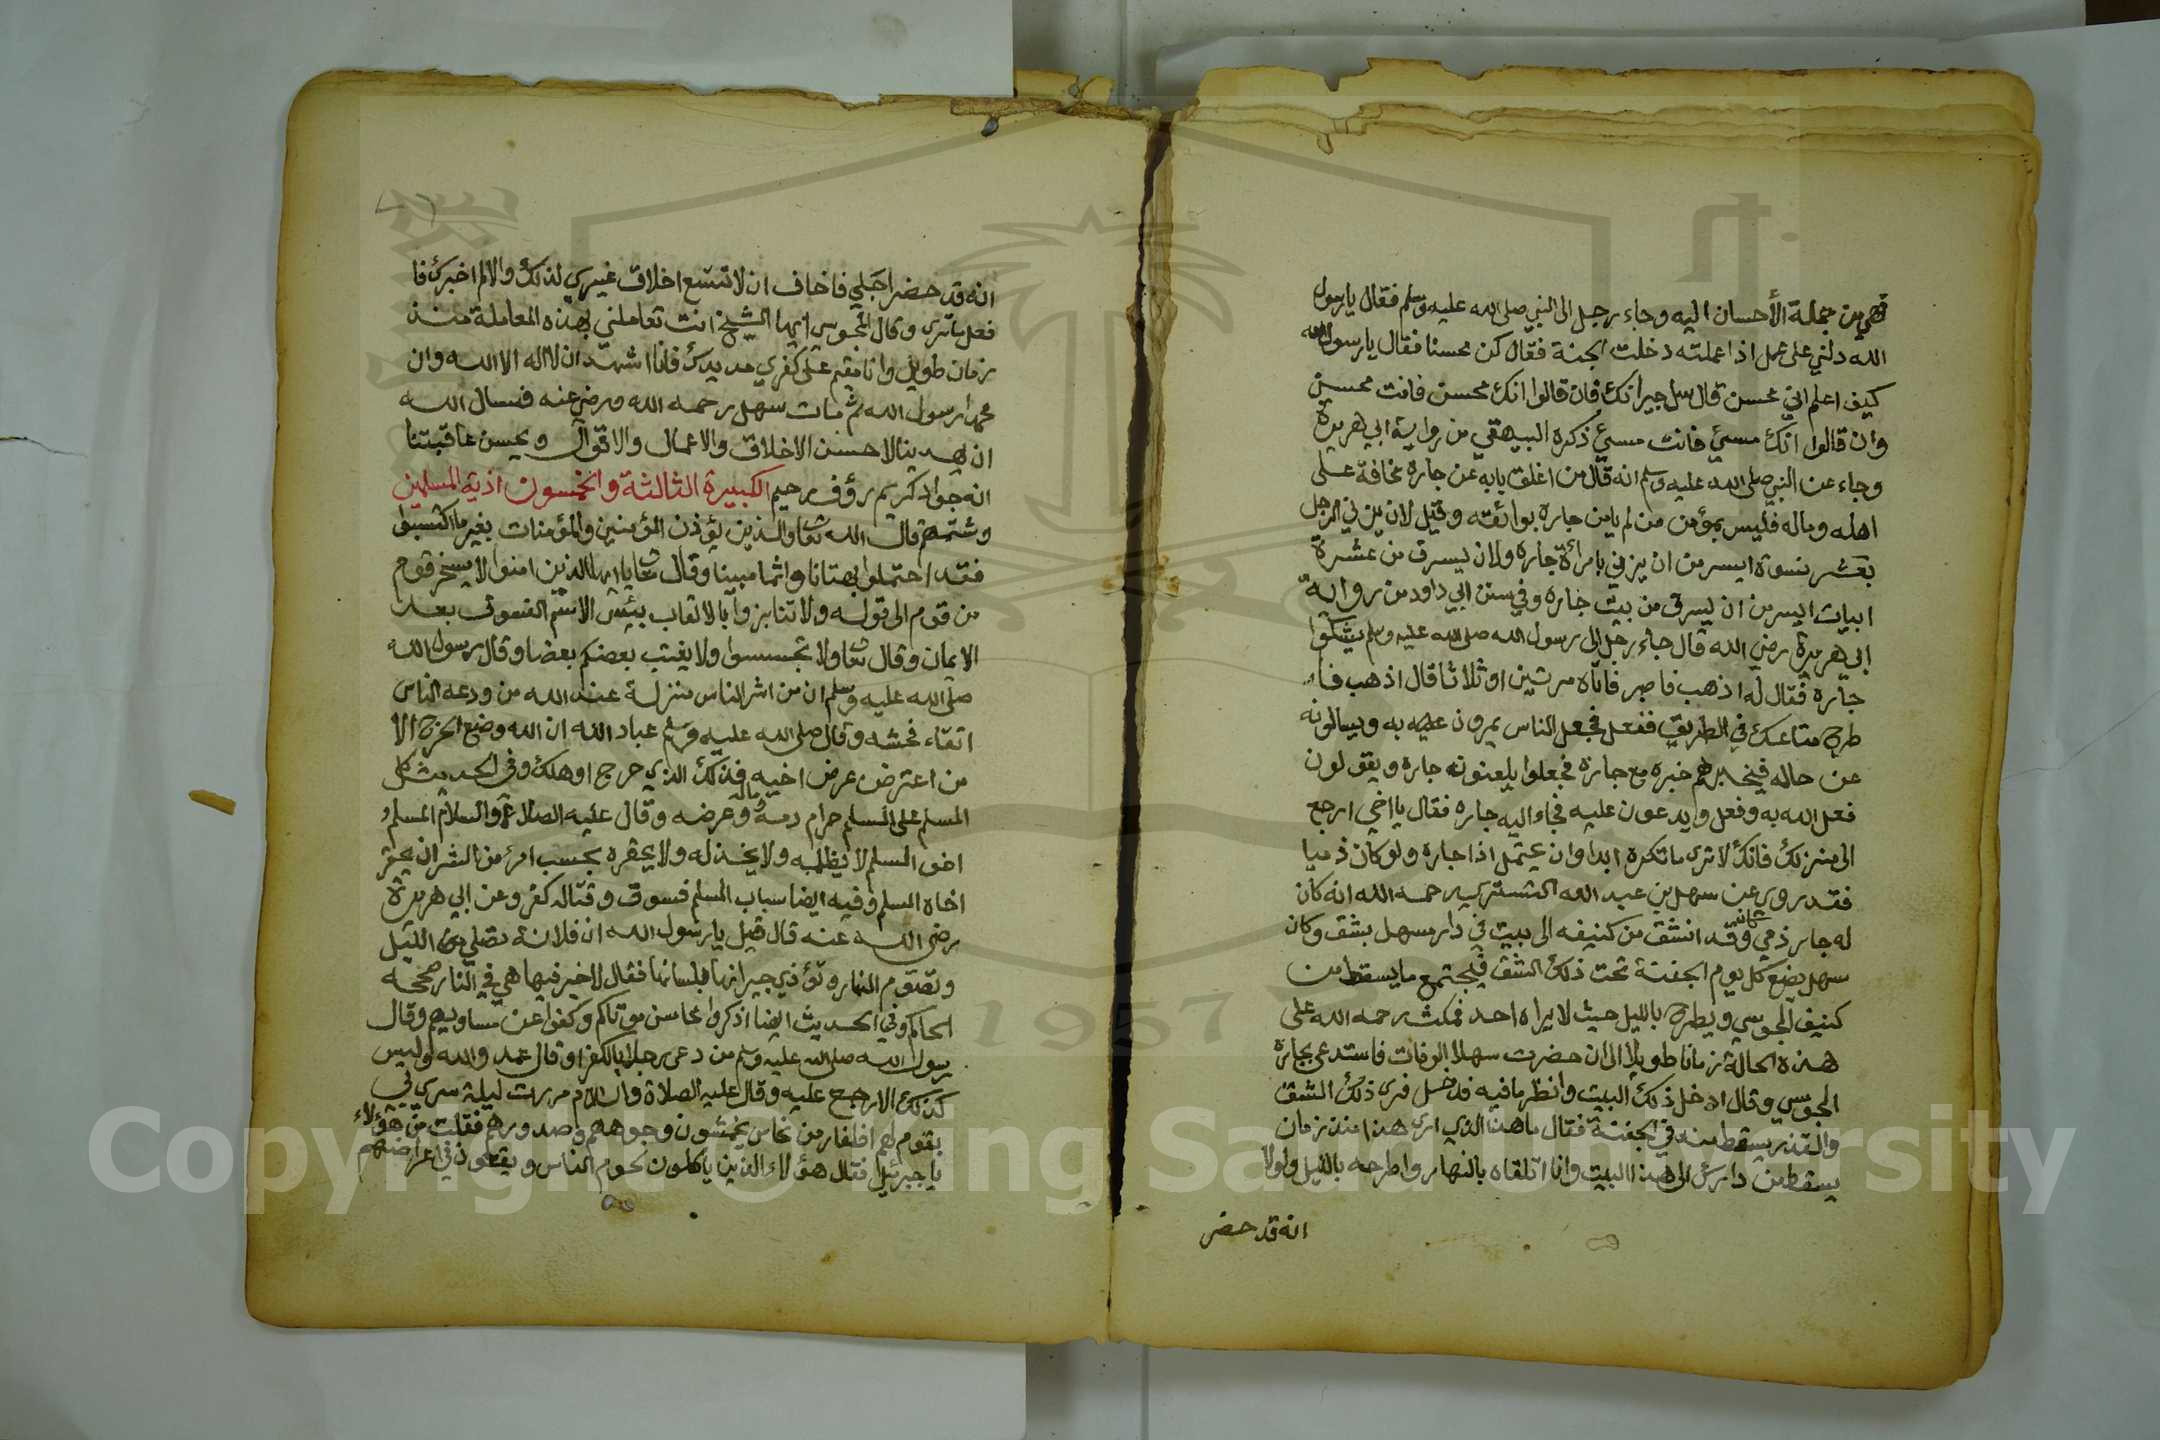 فهي من جملة الأحسان اليه وجاء رجل الى النبي صلى الله عليه وسلم فقال يارسول
الله دلني على عمل اذا عملته دخلت الجنة فقال كن محسنا فقال يارسول الله
كيف اعلم اني محسن قال سل جيرانك فان قالوا انك محسن فانت محسن
وان قالوا انك مسيئ فانت مسيئ ذكره البيهقي من رواية ابي هريرة
وجاء عن النبي صلى الله عليه وسلم انه قال من اغلق بابه عن جاره مخافة على
اهله وماله فليس بمؤمن من لم يامن جاره بوائقه وقيل لان يزني الرجل
بعشر نسوة ايسر من ان يزني بامرأة جاره ولان يسرق من عشرة
ابيات ايسر من ان يسرق من بيت جاره وفي سنن ابي داود من رواية
ابي هريرة رضي الله قال جاء رجل الى رسول الله صلى الله عليه وسلم يشكوا
جاره فقال له اذهب فاصبر فاتاه مرتين او ثلاثا قال اذهب فا
طرح متاعك في الطريق ففعل فجعل الناس يمرون عليه به ويسالونه
عن حاله فيخبرهم خبره مع جاره فجعلوا يلعنونه جاره ويقولون
فعل الله به وفعل ويدعون عليه فجاء اليه جاره فقال يا اخي ارجع
الى منزلك فانك لا ترى ما تكره ابدا وان يحتمل اذا جاره ولو كان ذميا
فقد روي عن سهل بن عبد الله التستري رحمه الله انه كان
له جار ذمي وكانه قد انشق من كنيفه الى بيت في دار سهل بشق وكان
سهل يضع كل يوم الجفنة تحت ذلك الشق فيجتمع ما يسقط من
كنيف المجوسي ويطرح بالليل حيث لا يراه احد فمكث رحمه الله على
هذه الحالة زمانا طويلا الى ان حضرت سهلا الوفات فاستدعى بجاره
المجوسي وقال ادخل ذلك البيت وانظر ما فيه فدخل فرى ذلك الشق
والقذر يسقط منه في الجفنة فقال ما هذا الذي ارى هذا منذ زمان
يسقط من دارك الى هذا البيت وانا اتلقاه بالنهار واطرحه بالليل ولولا
انه قد حضر
انه قد حضر اجلي فاخاف ان لا تتسع اخلاق غيري لذلك والا لم اخبرك فا
فعل ما ترى وقال المجوسي ايها الشيخ انت تعاملني بهذه المعاملة منذ
زمان طويل وانا مقيم على كفري مد يدك فانا اشهد ان لا اله الا الله وان
محمدا رسول الله ثم مات سهل رحمه الله ورضي عنه فنسال الله
ان يهدينا لاحسن الاخلاق والاعمال والاقوال ويحسن عاقبتنا
انه جواد كريم رؤف رحيم الكبيرة الثالثة والخمسون اذية المسلمين
وشتمهم قال الله تعا والذين يؤذن المؤمنين والمؤمنات بغير ما اكتسبوا
فقد احتملوا بهتانا واثما مبينا وقال تعا يا ايها الذين امنوا لا يسخر قوم
من قوم الى قوله ولا تنابزوا بالالقاب بئس الاسم الفسوق بعد
الايمان وقال تعا ولا تجسسوا ولا يغتب بعضكم بعضا وقال رسول الله
صلى الله عليه وسلم ان من اشر الناس منزلة عند الله من ودعه الناس
اتقاء فحشه وقال صلى الله عليه وسلم عباد الله ان الله وضع الحرج الا
من اعترض عرض اخيه فذلك الذي حرج او هلك وفي الحديث كل
المسلم على المسلم حرام دمه وماله وعرضه وقال عليه الصلاة والسلام المسلم
اخو المسلم لا يظلمه ولا يخذله ولا يحقره بحسب امرء من الشر ان يحقر
اخاه المسلم وفيه ايضا سباب المسلم فسوق وقتاله كفر وعن ابي هريرة
رضي الله عنه قال قيل يا رسول الله ان فلانة تصلي من الليل
وتصوم النهار وتؤذي جيرانها بلسانها فقال لا خير فيها هي في النار صححه
الحاكم وفي الحديث ايضا اذكروا محاسن موتاكم وكفوا عن مساويهم وقال
رسول الله صلى الله عليه وسلم من دعى رجلا بالكفر او قال عدو الله وليس
كذلك الا رجع عليه وقال عليه الصلاة والسلام مررت ليلة سري بي
بقوم لهم اظفار من نحاس يخمشون وجوههم وصدورهم فقلت من هؤلاء
يا جبرئيل فقال هؤلاء الذين ياكلون لحوم الناس ويقعون في اعراضهم
Copyright © King Saud University
1957